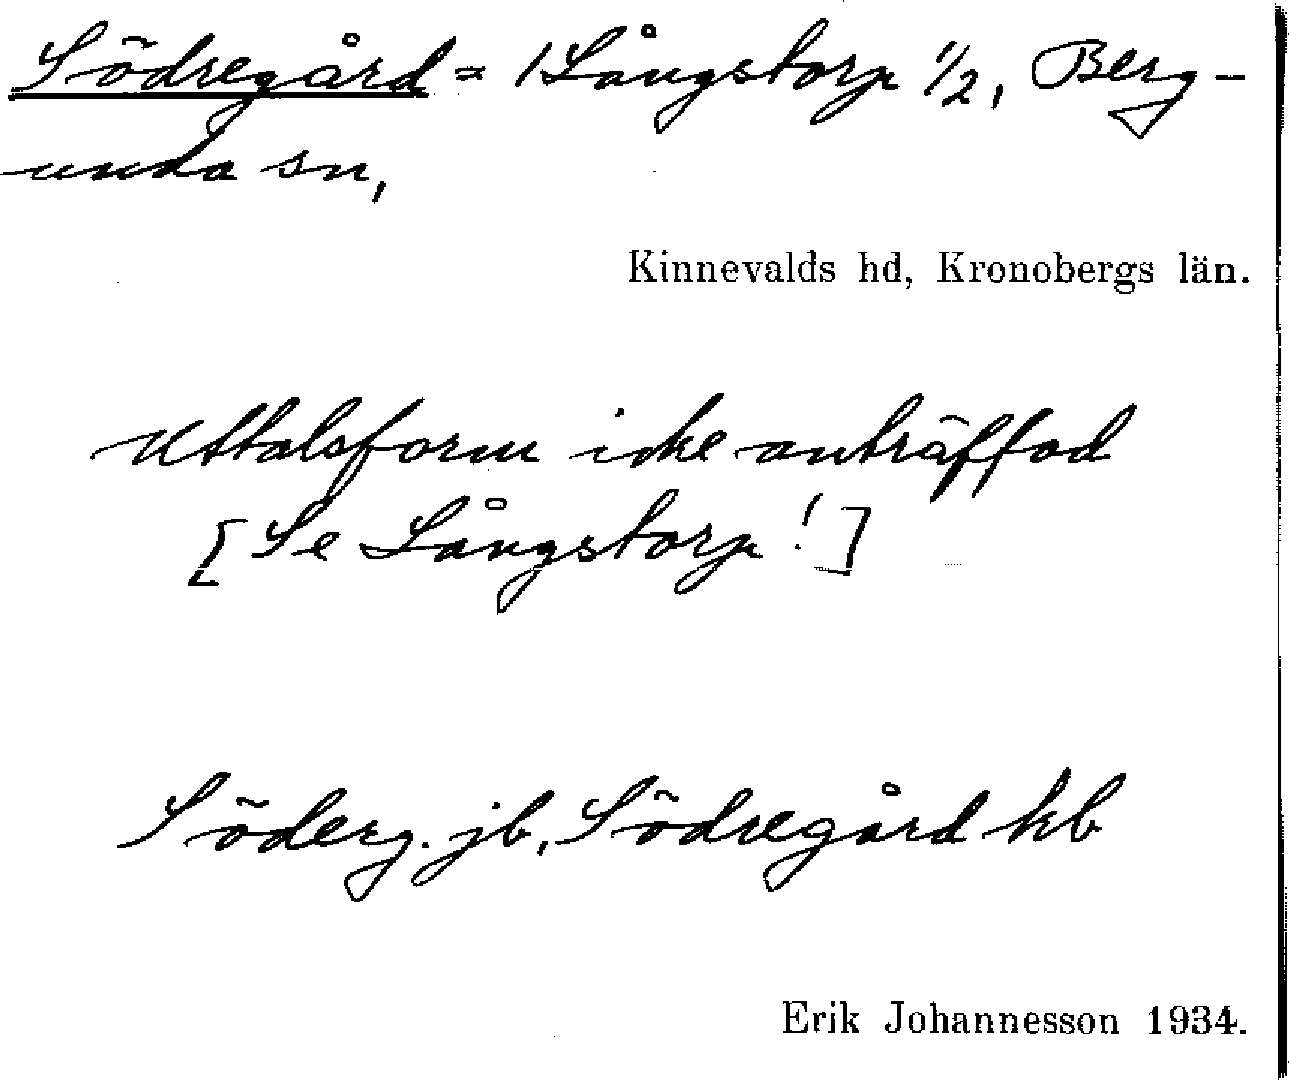 Södregård = /Långstorp 1/2, Berg-
unda sn,
Kinnevalds hd, Kronobergs län.
Uttalsform icke anträffad
[Se Långstorp!]
Söderg. jb, Södregård kb
Erik Johannesson 1934.